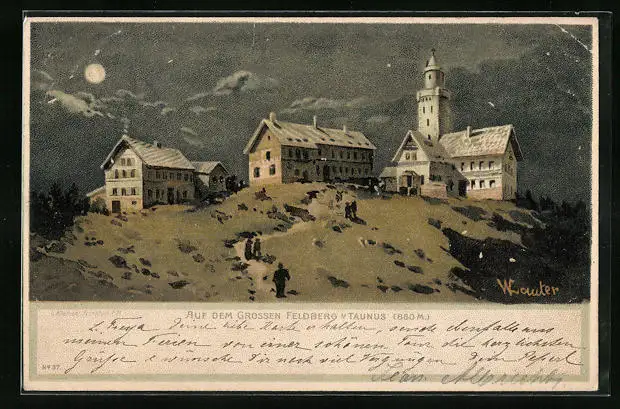 W. Lauter
AUF DEM GROSSEN FELDBERG V TAUNUS (880 M.)
L. Freya Deine liebe Karte erhalten, sende ebenfalls aus
meinen Ferien von einer schönen Tour die herzlichsten
Grüsse & wünsche Dir noch viel Vergnügen Dein
No 37.